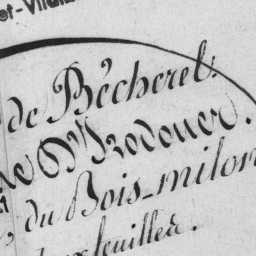 et-Vilaine
de Bécherel.
de St Modouer.
du Bois-milon
feuilles.